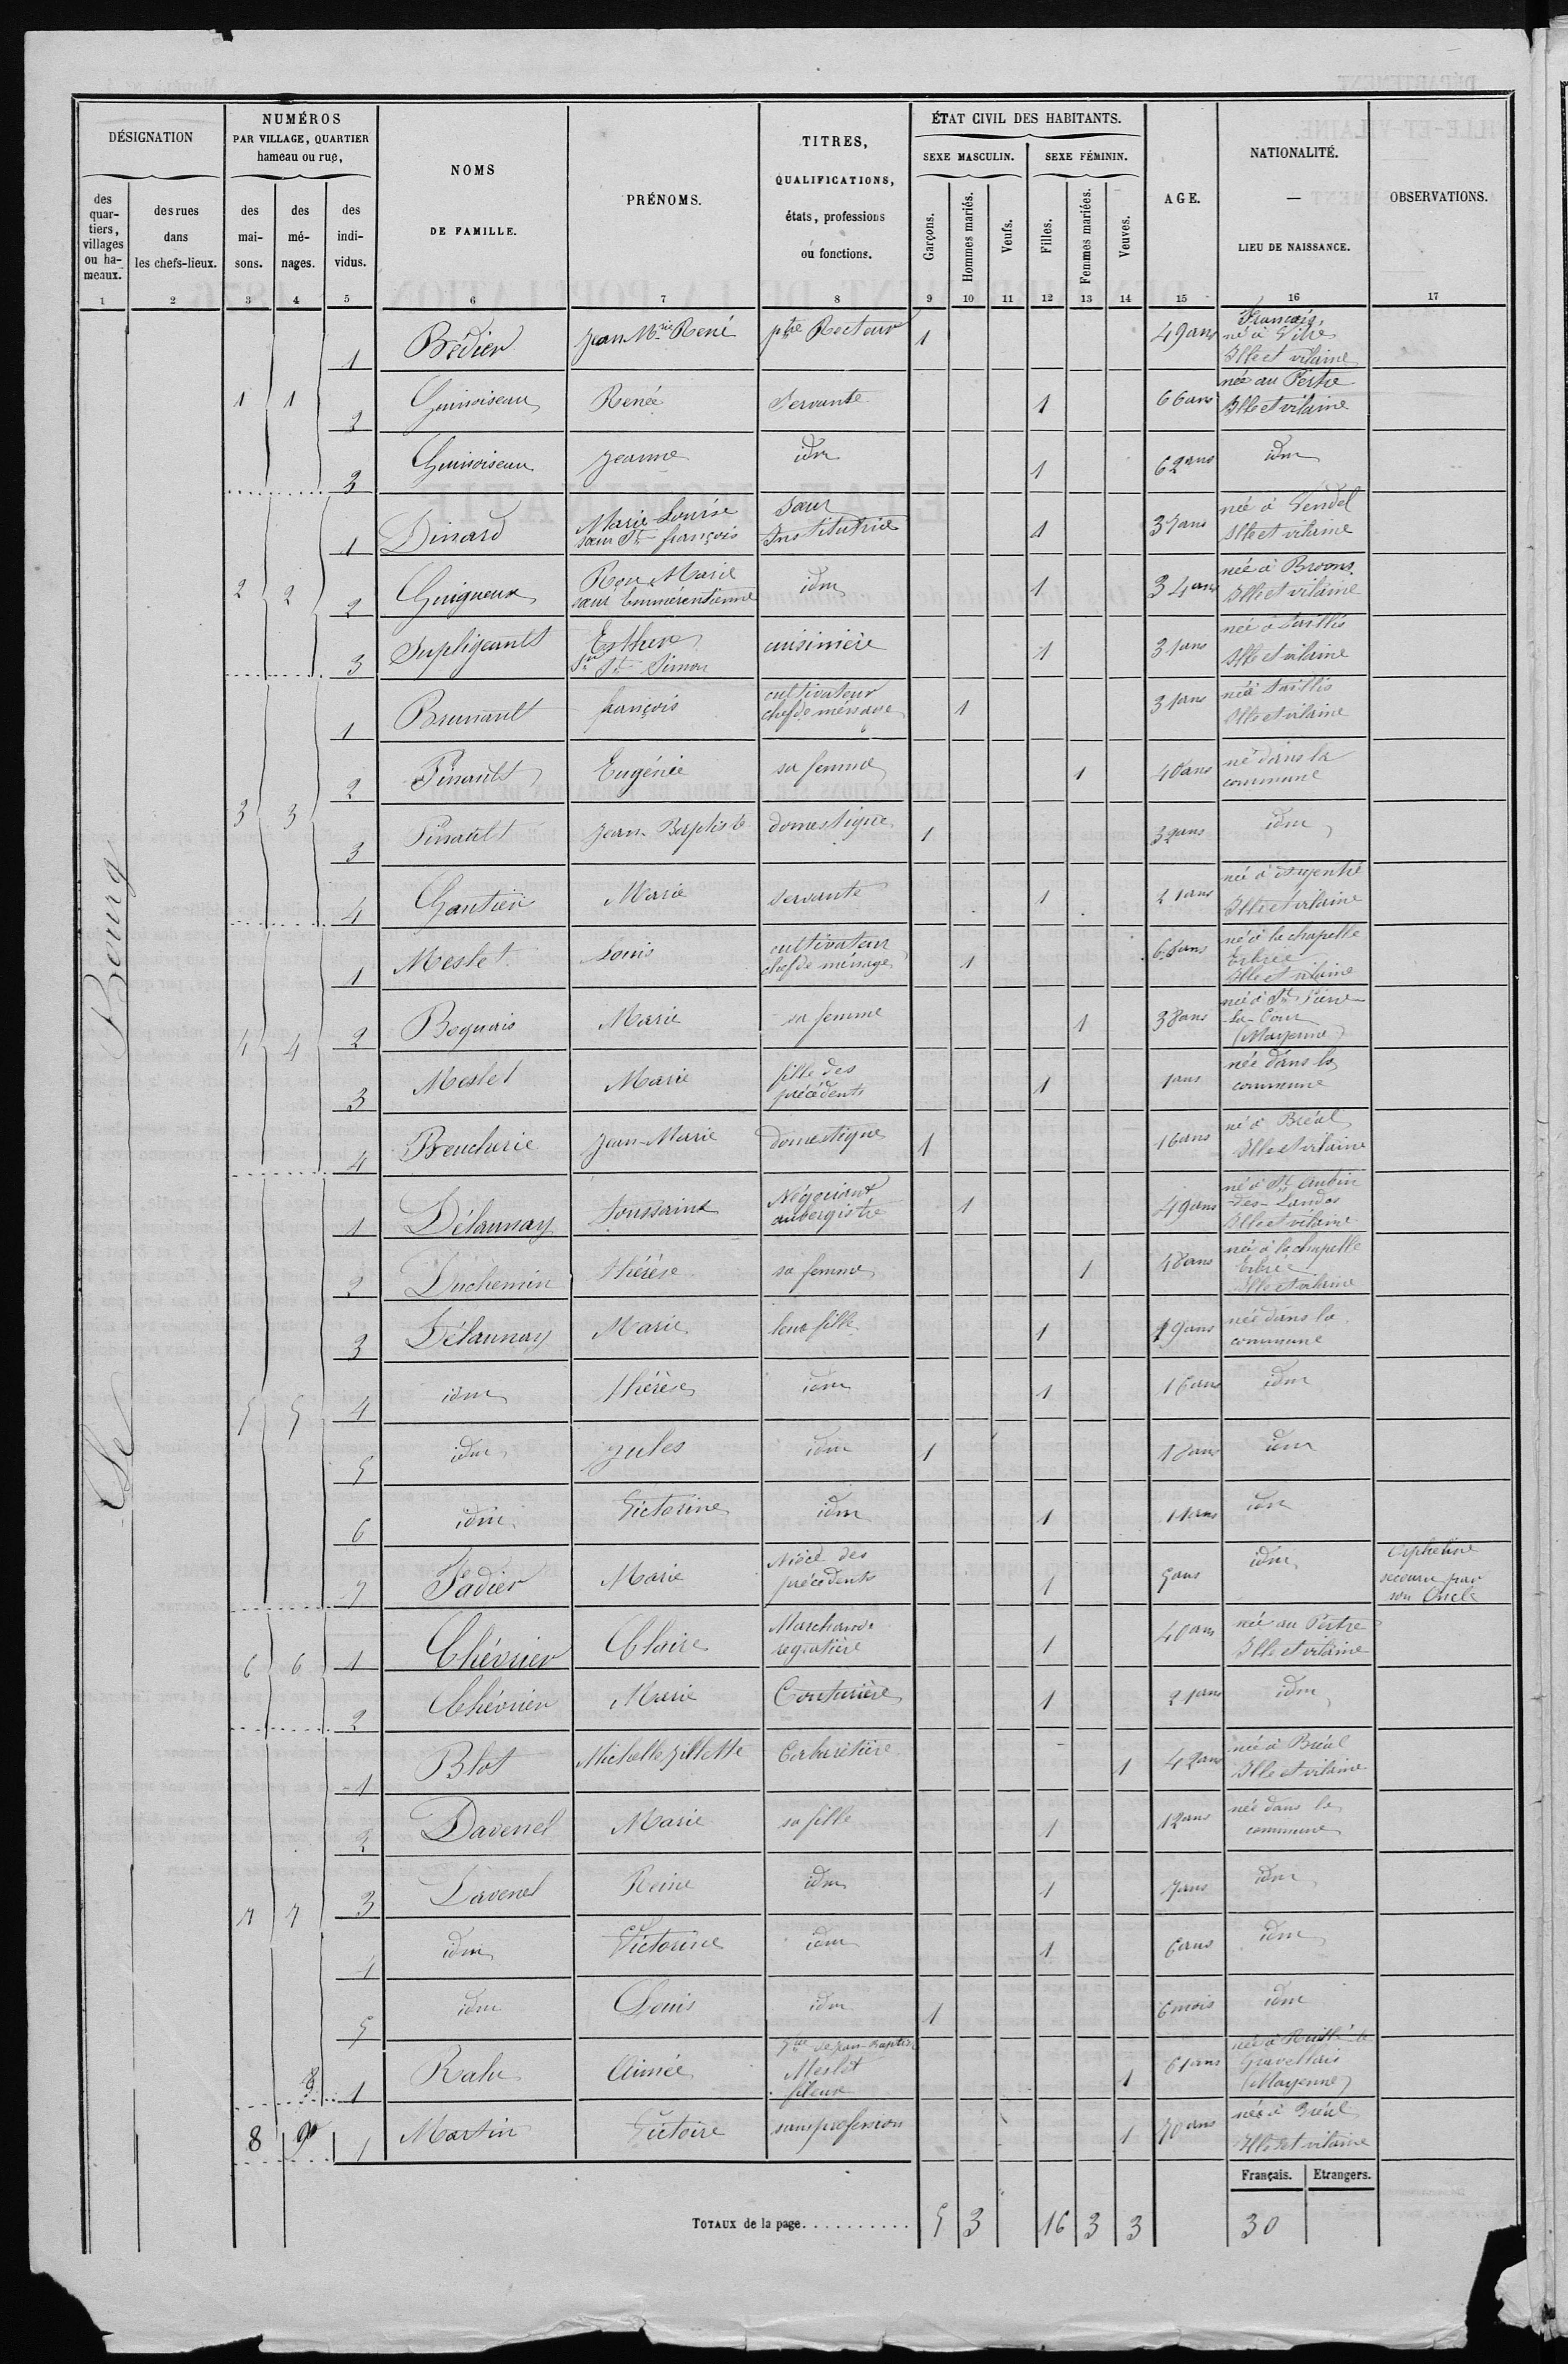 DÉSIGNATION
NUMÉROS
PAR VILLAGE, QUARTIER
hameau ou rue,
NOMS
DE FAMILLE.
PRÉNOMS.
TITRES,
QUALIFICATIONS,
états, professions
ou fonctions.
ÉTAT CIVIL DES HABITANTS.
SEXE MASCULIN.
SEXE FÉMININ.
AGE.
NATIONALITÉ.
—
LIEU DE NAISSANCE.
OBSERVATIONS.
des
quar-
tiers,
villages
ou ha-
meaux.
des rues
dans
les chefs-lieux.
des
mai-
sons.
des
mé-
nages.
des
indi-
vidus.
Garçons.
Hommes mariés.
Veufs.
Filles.
Femmes mariées.
Veuves.
1 2 3 4 5 6 7 8 9 10 11 12 13 14 15 16 17
Le Bourg
1 Bédier Jean Mrie René ptre Recteur 1 49 ans Français, né à Vitré Ille et vilaine
1 1 2 Guinoiseau Renée Servante 1 66 ans née au Pertre Ille et vilaine
3 Guinoiseau Jeanne idm 1 62 ans idm
1 Dinard Marie Louise sœur St françois Sœur Institutrice 1 37 ans née à Vendel Ille et vilaine
2 2 2 Guigueux Marie sœur Emmérentienne idm 1 34 ans née à Broons Ille et vilaine
3 Supligeault Esther Sr St Simon cuisinière 1 31 ans née à Taillis Ille et vilaine
1 Brunault françois cultivateur chef de ménage 1 31 ans né à Taillis Ille et vilaine
2 Pinault Eugénie sa femme 1 40 ans né dans la commune
3 3 3 Pinault Jean-Baptiste domestique 1 32 ans idm
4 Gautier Marie servante 1 21 ans née à Argentré Ille et vilaine
1 Meslet Louis cultivateur chef de ménage 1 né à la chapelle Erbrée Ille et vilaine
4 4 2 Marie sa femme 1 38 ans née à St Pierre -La-Cour (Mayenne)
3 Meslet Marie fille des précédents 1 1 ans née dans la commune
4 Beucherie Jean-Marie domestique 1 16 ans né à Bréal Ille et vilaine
1 Délaunay Toussaint Négociant aubergiste 1 49 ans né à St Aubin -des-Landes Ille et vilaine
2 Duchemin thérèse sa femme 1 48 ans née à la chapelle Erbrée Ille et vilaine
3 Délaunay Marie leur fille 1 19 ans née dans la commune
5 5 4 idm thérèse idm 1 16 ans idm
5 idm jules idm 1 idm
6 idm Victorine idm 1 11 ans idm
7 Fadier Marie Nièce des précédents 1 5 ans idm Orpheline secourue par son Oncle
6 6 1 Chévrier Claire Marchande regratière 1 40 ans née au Pertre Ille et vilaine
2 Chévrier Marie Couturière 1 21 ans idm
1 Blot Michelle Jillette Cabaretière 1 42 ans née à Bréal Ille et vilaine
2 Davenel Marie sa fille 1 12 ans née dans la commune
7 7 3 Davenel Reine idm 1 7 ans idm
4 idm Victorine idm 1 6 ans idm
5 idm Louis idm 1 6 mois idm
8 1 Rahu Aimée Vve de Jean-Baptiste Meslet fileuse 1 61 ans née à Ruillé le Gravelais (Mayenne)
8 9 1 Martin Victoire sans profession 1 70 ans née à Bréal Ille et vilaine
Français. Etrangers.
TOTAUX de la page........... 5 3 16 3 3 30